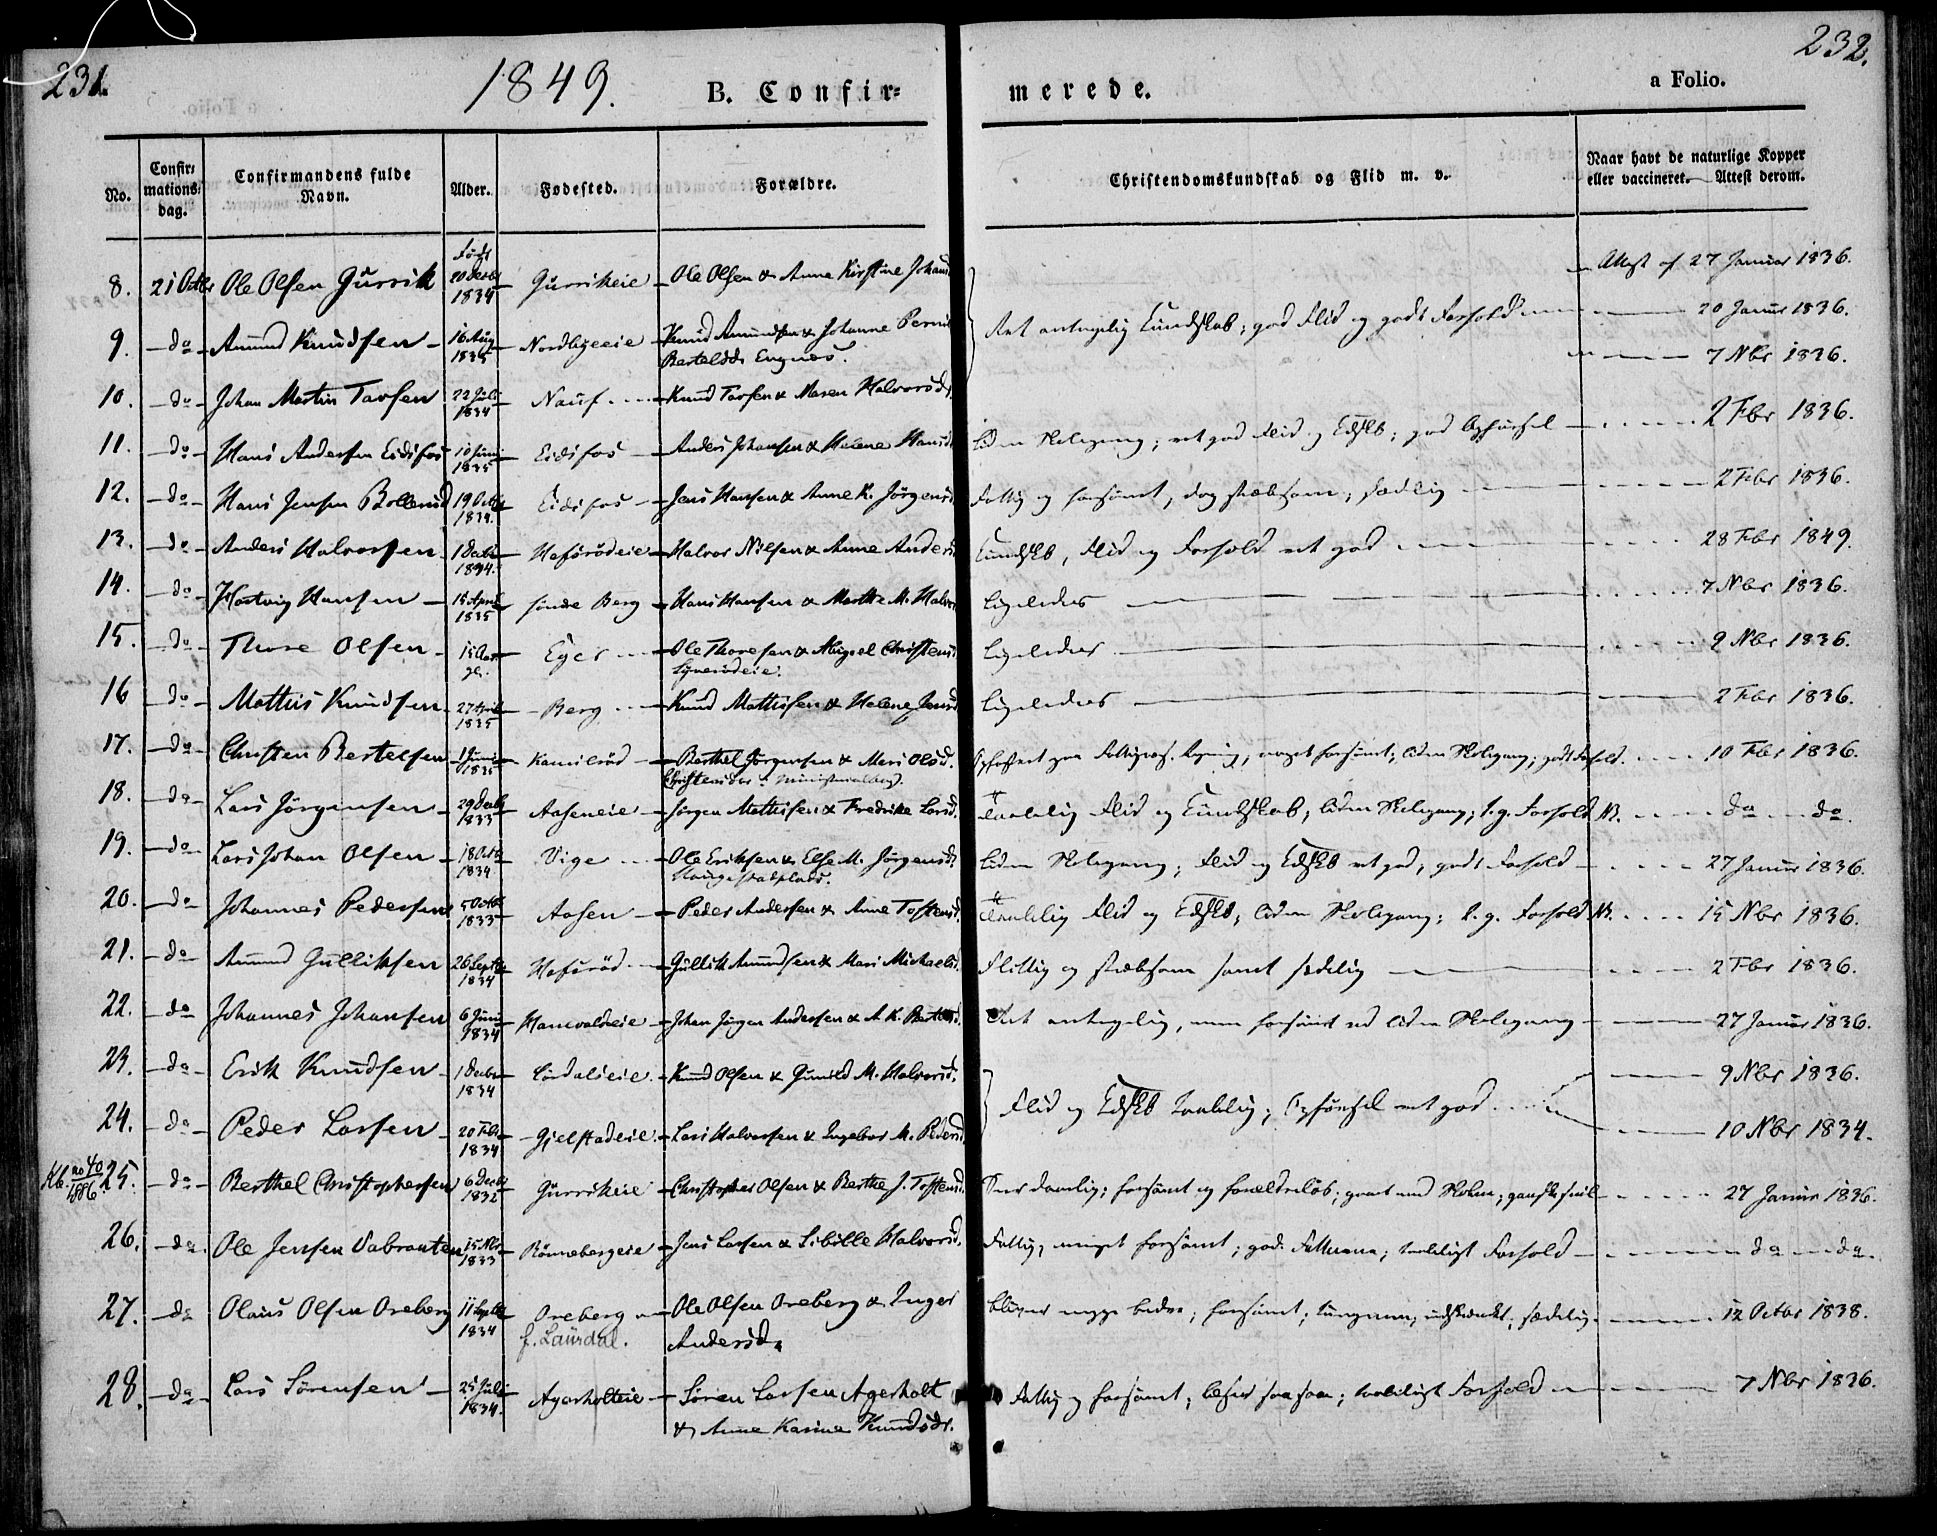 231.
1849.
B. Confir=
merede.
a Folio.
232.
No.
Confir=
mations=
dag.
Confirmandens fulde
Navn.
Alder.
Fødested.
Forældre.
Christendomskundskab og Flid m. v.
Naar havt de naturlige Kopper
eller vaccineret. Attest derom.
Født
8. 21 Octbr Ole Olsen Gurrik 20 Decbr 1834 Gurrikeie Ole Olsen & Anne Kirstine Johans Attest af 27 Januar 1836.
9. do Amund Knudsen 16 Aug 1835 Nordbyeeie Knud Amundsen & Johanne Pernil
Bertelsdr Engnæs.
Ret antagelig Kundskab; god Flid og godt Forhold 20 Januar 1836.
10. do Johan Martin Tarfen 22 Juli 1834 Nauf Knud Tarfen & Maren Halvorsdr 7 Nbr 1836.
11. do Hans Andersen Eidsfos 10 Juni 1835 Eidsfos Anders Johansen & Helene Hansd liden Skolegang; ret god Flid og Kdskb; god Opførsel 2 Fbr 1836.
12. do Hans Jensen Bollerud 19 Octbr 1834. Eidsfos Jens Hansen & Anne K. Jörgensd Fattig og forsømt, dog stræbsom, sædelig 2 Fbr 1836.
13. do Anders Halvorsen 1 Decbr 1834. Hafsrödeie Halvor Nilsen & Anne Andersd Kundskb, Flid og Forhold ret god 28 Fbr 1849.
14. do Hartvig Hansen 15 April 1835 søndre Berg Hans Hansen & Marthe M. Halvor Ligeledes 7 Nbr 1836.
15. do Thore Olsen 15 Aar gl. Eger Ole Thoresen & Christensd Ligeledes 9 Nbr 1836.
16 do Mathis Knudsen 27 April 1835 Berg Knud Mathisen & Helene Jensd Ligeledes 2 Fbr 1836.
17. do Christen Bertelsen 1 Juni 1835 Kamilröd Berthel Jörgensen & Mari Olsd. noget forsømt; liden Skolegang; godt Forhold. 10 Fbr 1836.
18. do Lars Jörgensen 29 Decbr 1833 Aaseneie Jörgen Mathisen & Fredrike Larsd. Taalelig Flid og Kundskab, liden Skolegang; t. g. Forhold NB. do do.
19. do Lars Johan Olsen 18 Octbr 1834 Vige Ole Eriksen & Else M. Jörgensd.
Haugestadplads.
liden Skolegang; Flid og Kdskb ret god; godt Forhold 27 Januar 1836.
20. do Johannes Pedersen 5 Octbr 1833 Aasen Peder Andersen & Anne Tostensd. Taalelig Flid og Kdskb; liden Skolegang; t. g. Forhold NB. 15 Nbr 1836.
21. do Amund Gulliksen 26 Septbr 1834 Hafsröd Gullik Amundsen & Mari Michaelsd. Flittig og stræbsom samt sædelig 2 Fbr 1836.
22. do Johannes Johansen 6 Juni 1834 Hanevoldeie Johan Jörgen Andersen & A. K. Bertelsd. Ret antagelig, men forsømt ved liden Skolegang 27 Januar 1836.
23. do Erik Knudsen 1 Decbr 1834 Lördalseie Knud Olsen & Gunild M. Halvorsd. 9 Nbr 1836.
Flid og Kdskb taalelig; Opførsel ret god
24. do Peder Larsen 20 Fbr 1834 Gjelstadeie Lars Halvorsen & Ingebor M. Pedersd 10 Nbr 1834.
Kb. no 40/1886. 25. do Berthel Christophersen 6 Decbr 1832 Gurrikeie Christopher Olsen & Berthe J. Tostensd. forsømt og forældreløs; 27 Januar 1836.
26. do Ole Jensen Vabraaten 15 Nbr 1833 Rönnebergeie Jens Larsen & Sibille Halvorsd. Fattig, meget forsømt; god Fatteevne; taaleligt Forhold do do.
27. do Olaus Olsen Oreberg 11 Septbr 1834 Oreberg
f. Laurdal.
Ole Olsen Oreberg & Inger
Andersd.
forsømt; sædelig. 12 Octbr 1838.
28. do Lars Sörensen 25 Juli 1834. Agerholteie Sören Larsen Agerholt
& Anne Karine Knudsdr.
Fattig og forsømt; læser saa saa; taaleligt Forhold 7 Nbr 1836.